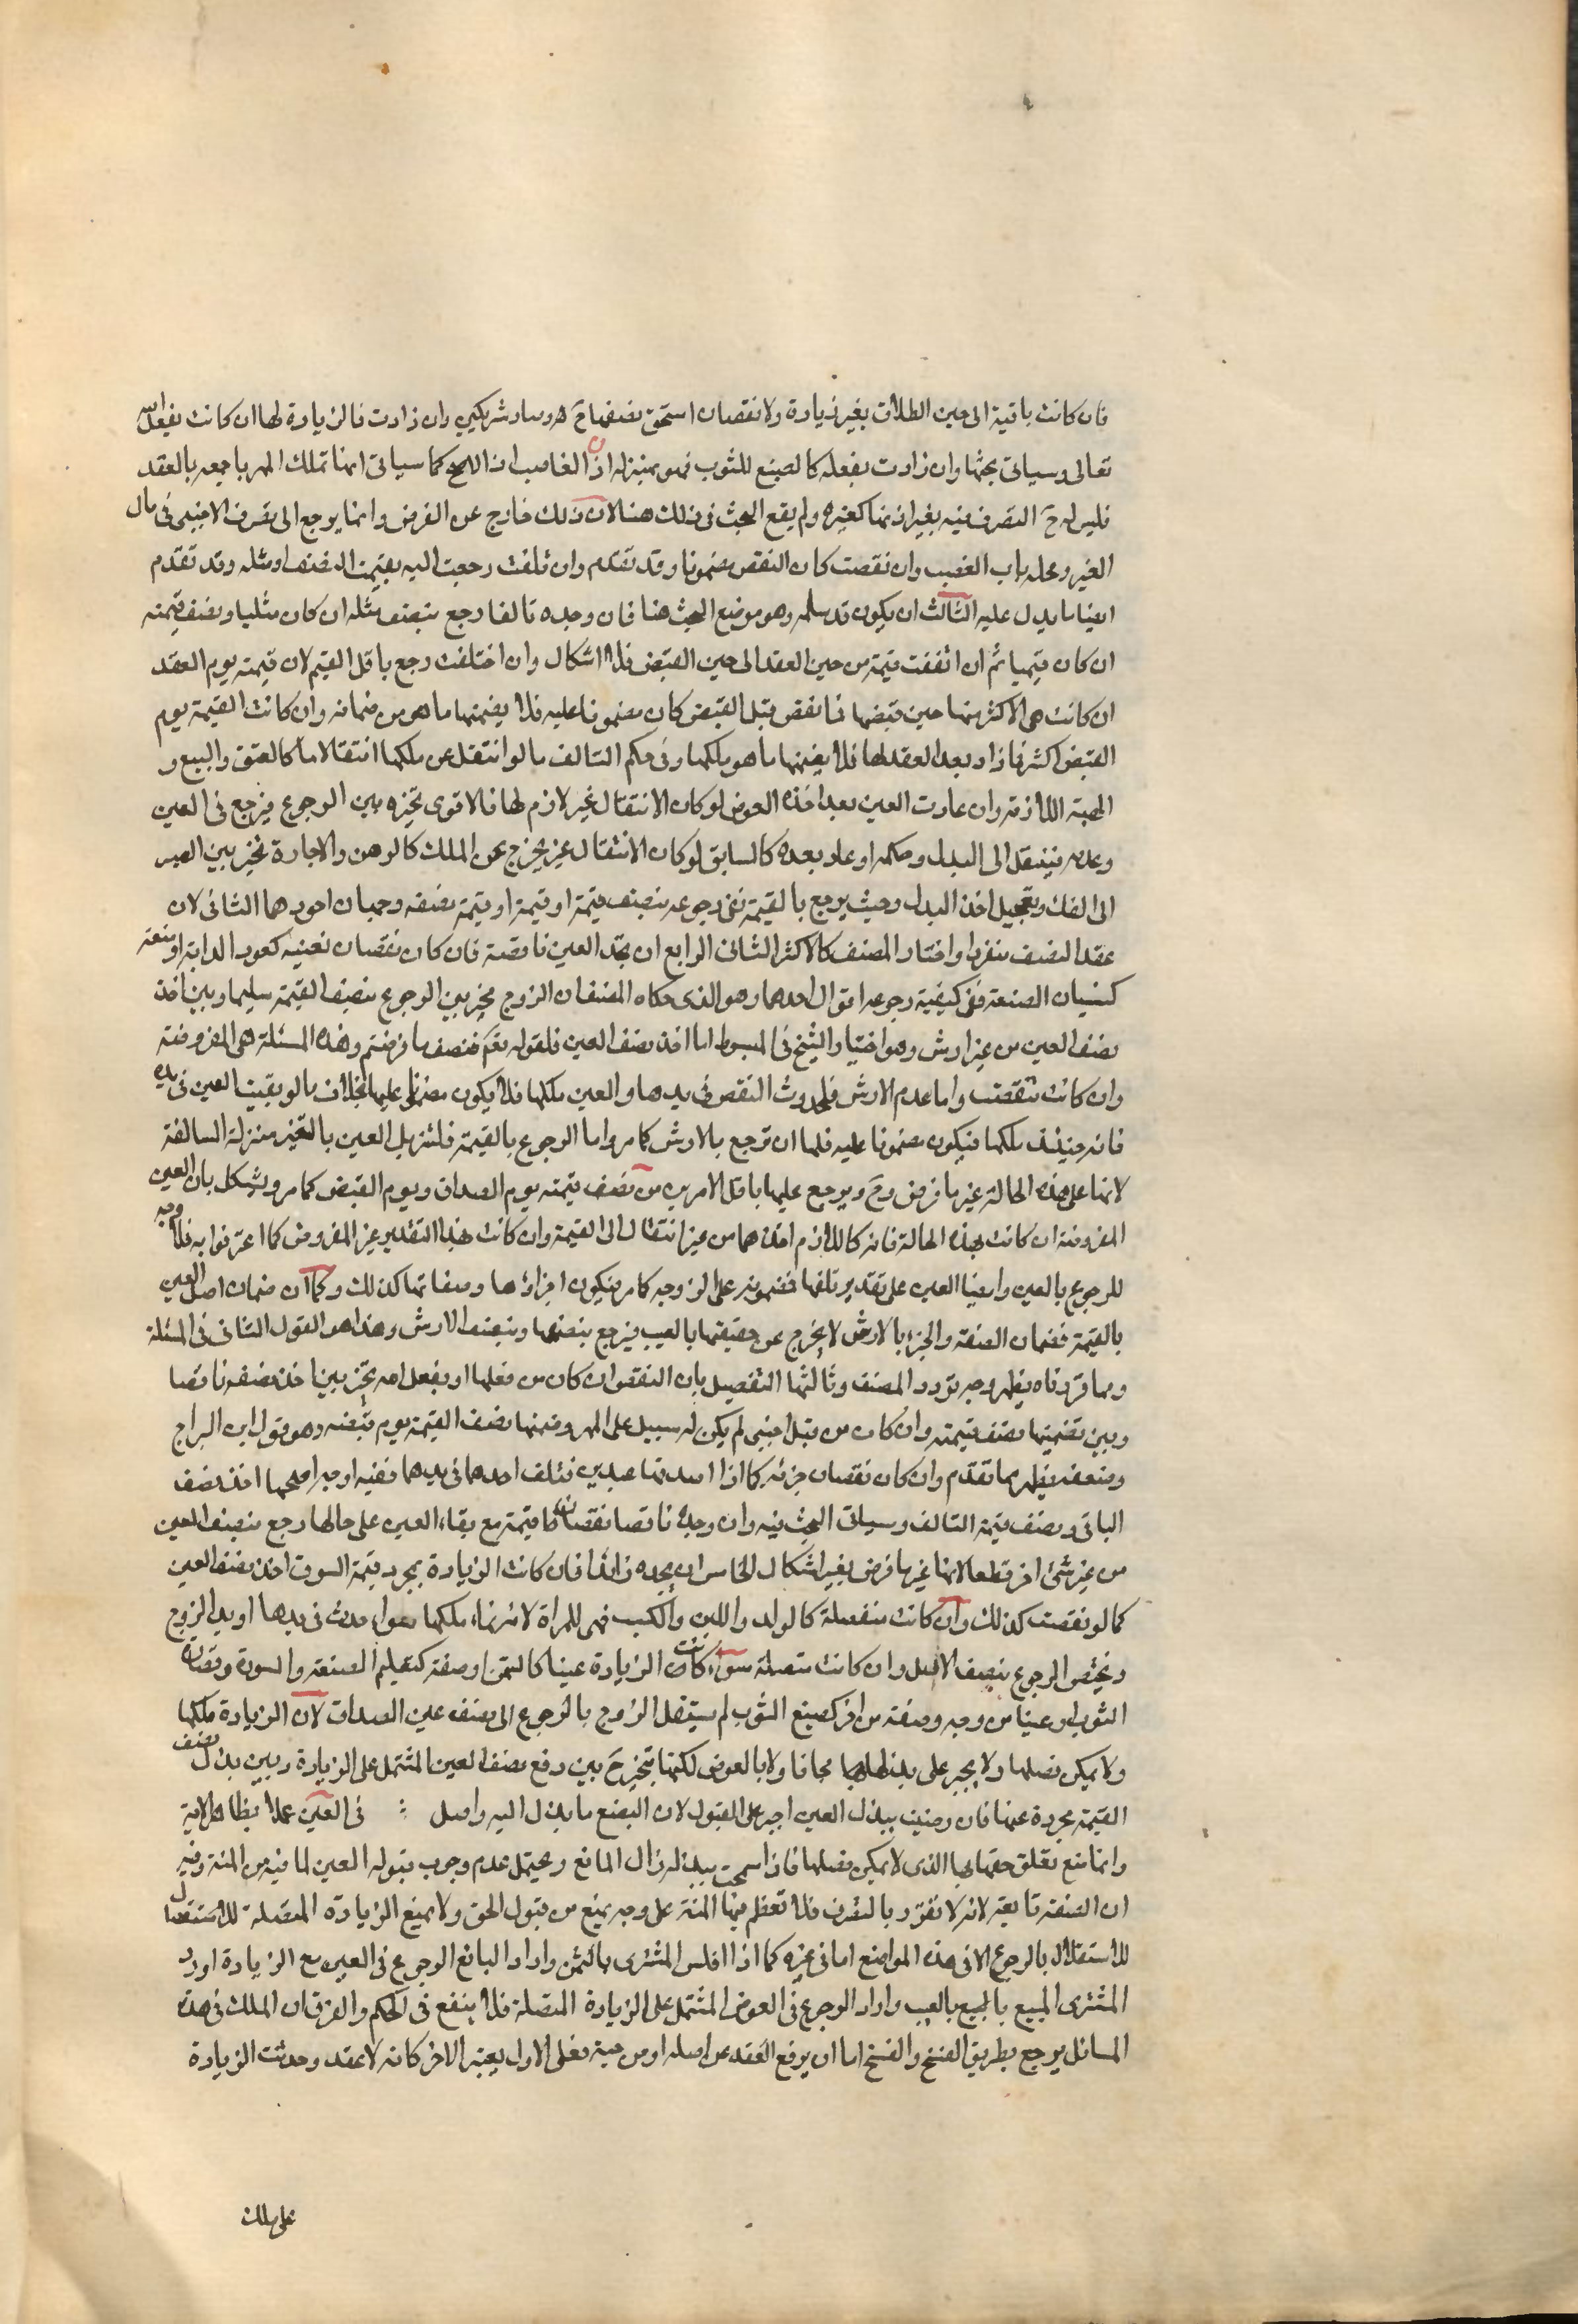 فان كانت باقية الى حين الطلاق بغير زيادة ولا نقصان استحق نصفها ح هو وصار شريكين وان زادت فالزيادة لها ان كانت بفعل الله
تعالى وسياتى بحثها وان زادت بفعله كالصبغ للثوب فهو بمنزلة الغاصب اذ الاصح كما سياتى انها تملك المهر باجمعه بالعقد
فليس له ح التصرف فيه بغير اذنها كغيره ولم يقع البحث فى ذلك هنا لان ذلك خارج عن الفرض وانما يرجع الى تصرف الاجنبى فى مال
الغير ومحله باب الغصب وان نقصت كان النقص مضمونا وقد تقدم وان تلفت رجعت اليه بقيمة النصف او مثله وقد تقدم
ايضا ما يدل عليه الثالث ان يكون قد سلمه وهو موضع البحث هنا فان وجده تالفا رجع بنصف مثله ان كان مثليا ونصف قيمته
ان كان قيميا ثم ان اتفقت قيمته من حين العقد الى حين القبض فلا اشكال وان اختلفت رجع باقل القيم لان قيمته يوم العقد
ان كانت هى الاكثر منها حين قبضها فما نقص قبل القبض كان مضمونا عليه فلا يضمنها ما هو من ضمانه وان كانت القيمة يوم
القبض اكثر فما زاد بعد العقد لها فلا يضمنها ما هو ملكها وفى حكم التالف ما لو انتقل عن ملكها انتقالا ما كالعتق والبيع و
الهبة اللازمة وان عادت العين بعد اخذه العوض لو كان الانتقال غير لازم لها فالاقوى تخيره بين الرجوع فيرجع فى العين
وعدمه فينتقل الى البدل وحكمه او عاد بعده كالسابق لو كان الانتقال غير مخرج عن الملك كالرهن والاجارة تخير بين الصبر
الى الفك وتعجيل اخذ البدل وحيث يرجع بالقيمة ففى رجوعه بنصف قيمة او قيمة نصفه وجهان اجودهما الثانى لان
عقد النصف منفردا واختار المصنف كالاكثر الثانى الرابع ان يجد العين ناقصة فان كان نقصان تعيب كعور الدابة او صنعة
كنسيان الصنعة ففى كيفية رجوعه اقوال احدها وهو الذى حكاه المصنف ان الزوج مخير بين الرجوع بنصف القيمة سليما وبين اخذ
نصف العين من غير ارش وهو اختيار الشيخ فى المبسوط اما اخذ نصف العين فلقوله تعم فنصف ما فرضتم وهذه المسئلة هى المفروضة
وان كانت نقصت واما عدم الارش فلحدوث النقص فى يدها والعين ملكها فلا يكون مضمونا عليها بخلاف ما لو بقيت العين فى يده
فانه حينئذ ملكها فيكون مضمونا عليه فلها ان ترجع بالارش كما مر واما الرجوع بالقيمة فلتنزيل العين بالتغير منزلة السالفة
لانها على هذه الحالة غير ما فرض وح ويرجع عليها باقل الامرين من نصف قيمته يوم الصداق ويوم القبض كما مر ويشكل بان العين
المفروضة ان كانت بهذه الحالة فانه كاللازم اخذها من غير انتقال الى القيمة وان كانت بهذا التقدير غير المفروض كما اعترفوا به فلا وجه
للرجوع بالعين وايضا العين على تقدير تلفها فمضمونه على الزوجه كما مر فيكون اجزاؤها وصفاتها كذلك وكما ان ضمان اصل العين
بالقيمة فضمان الصفة والجزء بالارش لا يخرج عن حقيقتها بالعيب فيرجع بنصفها وبنصف الارش وهذا هو القول الثانى فى المسئلة
ومما قررناه يظهر وجه تردد المصنف وثالثها التفصيل بان النقص ان كان من فعلها او بفعل الله تخير بين اخذ نصفه ناقصا
وبين تضمينها نصف قيمته وان كان من قبل اجنبى لم يكن له سبيل على المهر وضمنها نصف القيمة يوم قبضه وهو قول ابن البراج
وضعفه يظهر مما تقدم وان كان نقصان جزئه كما اذا اصدقها عبدين فتلف احدهما فى يدها ففيه اوجه اصحها اخذ نصف
الباقى ونصف قيمة التالف وسياتى البحث فيه وان وجده ناقصا نقصان قيمة مع بقاء العين على حالها رجع بنصف العين
من غير شئ اخر قطعا لانها غير ما فرض بغير اشكال الخامس ان يجده زائدا فان كانت الزيادة بمجرد قيمة السوق اخذ نصف العين
كما لو نقصت كذلك وان كانت منفصلة كالولد واللبن والكسب فهى للمراة لانه نماء ملكها سواء حدث فى يدها او يد الزوج
ويختص الرجوع بنصف الاصل وان كانت متصلة سواء كانت الزيادة عينا كالسمن او صفة كتعليم الصنعة والسورة وقصارة
الثوب او عينا من وجه وصفة من اخر كصبغ الثوب لم يستقل الزوج بالرجوع الى نصف عين الصداق لان الزيادة ملكها
ولا يمكن فصلها ولا يجبر على بذلها لها مجانا ولا بالعوض لكنها تتخير ح بين دفع نصف العين المشتمل على الزيادة وبين بذل نصف
القيمة مجردة عنها فان رضيت ببذل العين اجبر على القبول لان البضع ما بذل اليه واصل فى العين عملا بظاهر الاية
وانما منع تعلق حقها بها الذى لا يمكن فصلها فاذا سمحت ببذله زال المانع ويحتمل عدم وجوب قبوله العين لما فيه من المنة وفيه
ان الصفة تابعة لانه لا تفرد بالتصرف فلا تعظم فيها المنة على وجه يمنع من قبول الحق ولا يمنع الزيادة المتصلة للاستقلال
للاستقلال بالرجوع الا فى هذه المواضع اما فى غيره كما اذا افلس المشترى بالثمن واراد البائع الرجوع فى العين مع الزيادة او رد
المشترى المبيع بالمبيع بالعيب واراد الرجوع فى العوض المشتمل على الزيادة المتصلة فلا ينفع فى الحكم والفرق ان الملك فى هذه
المسائل يرجع بطريق الفسخ والفسخ اما ان يرفع العقد من اصله او من حينه فعلى الاول يعتبر الاخر كانه لا عقد وحدثت الزيادة
على ملك